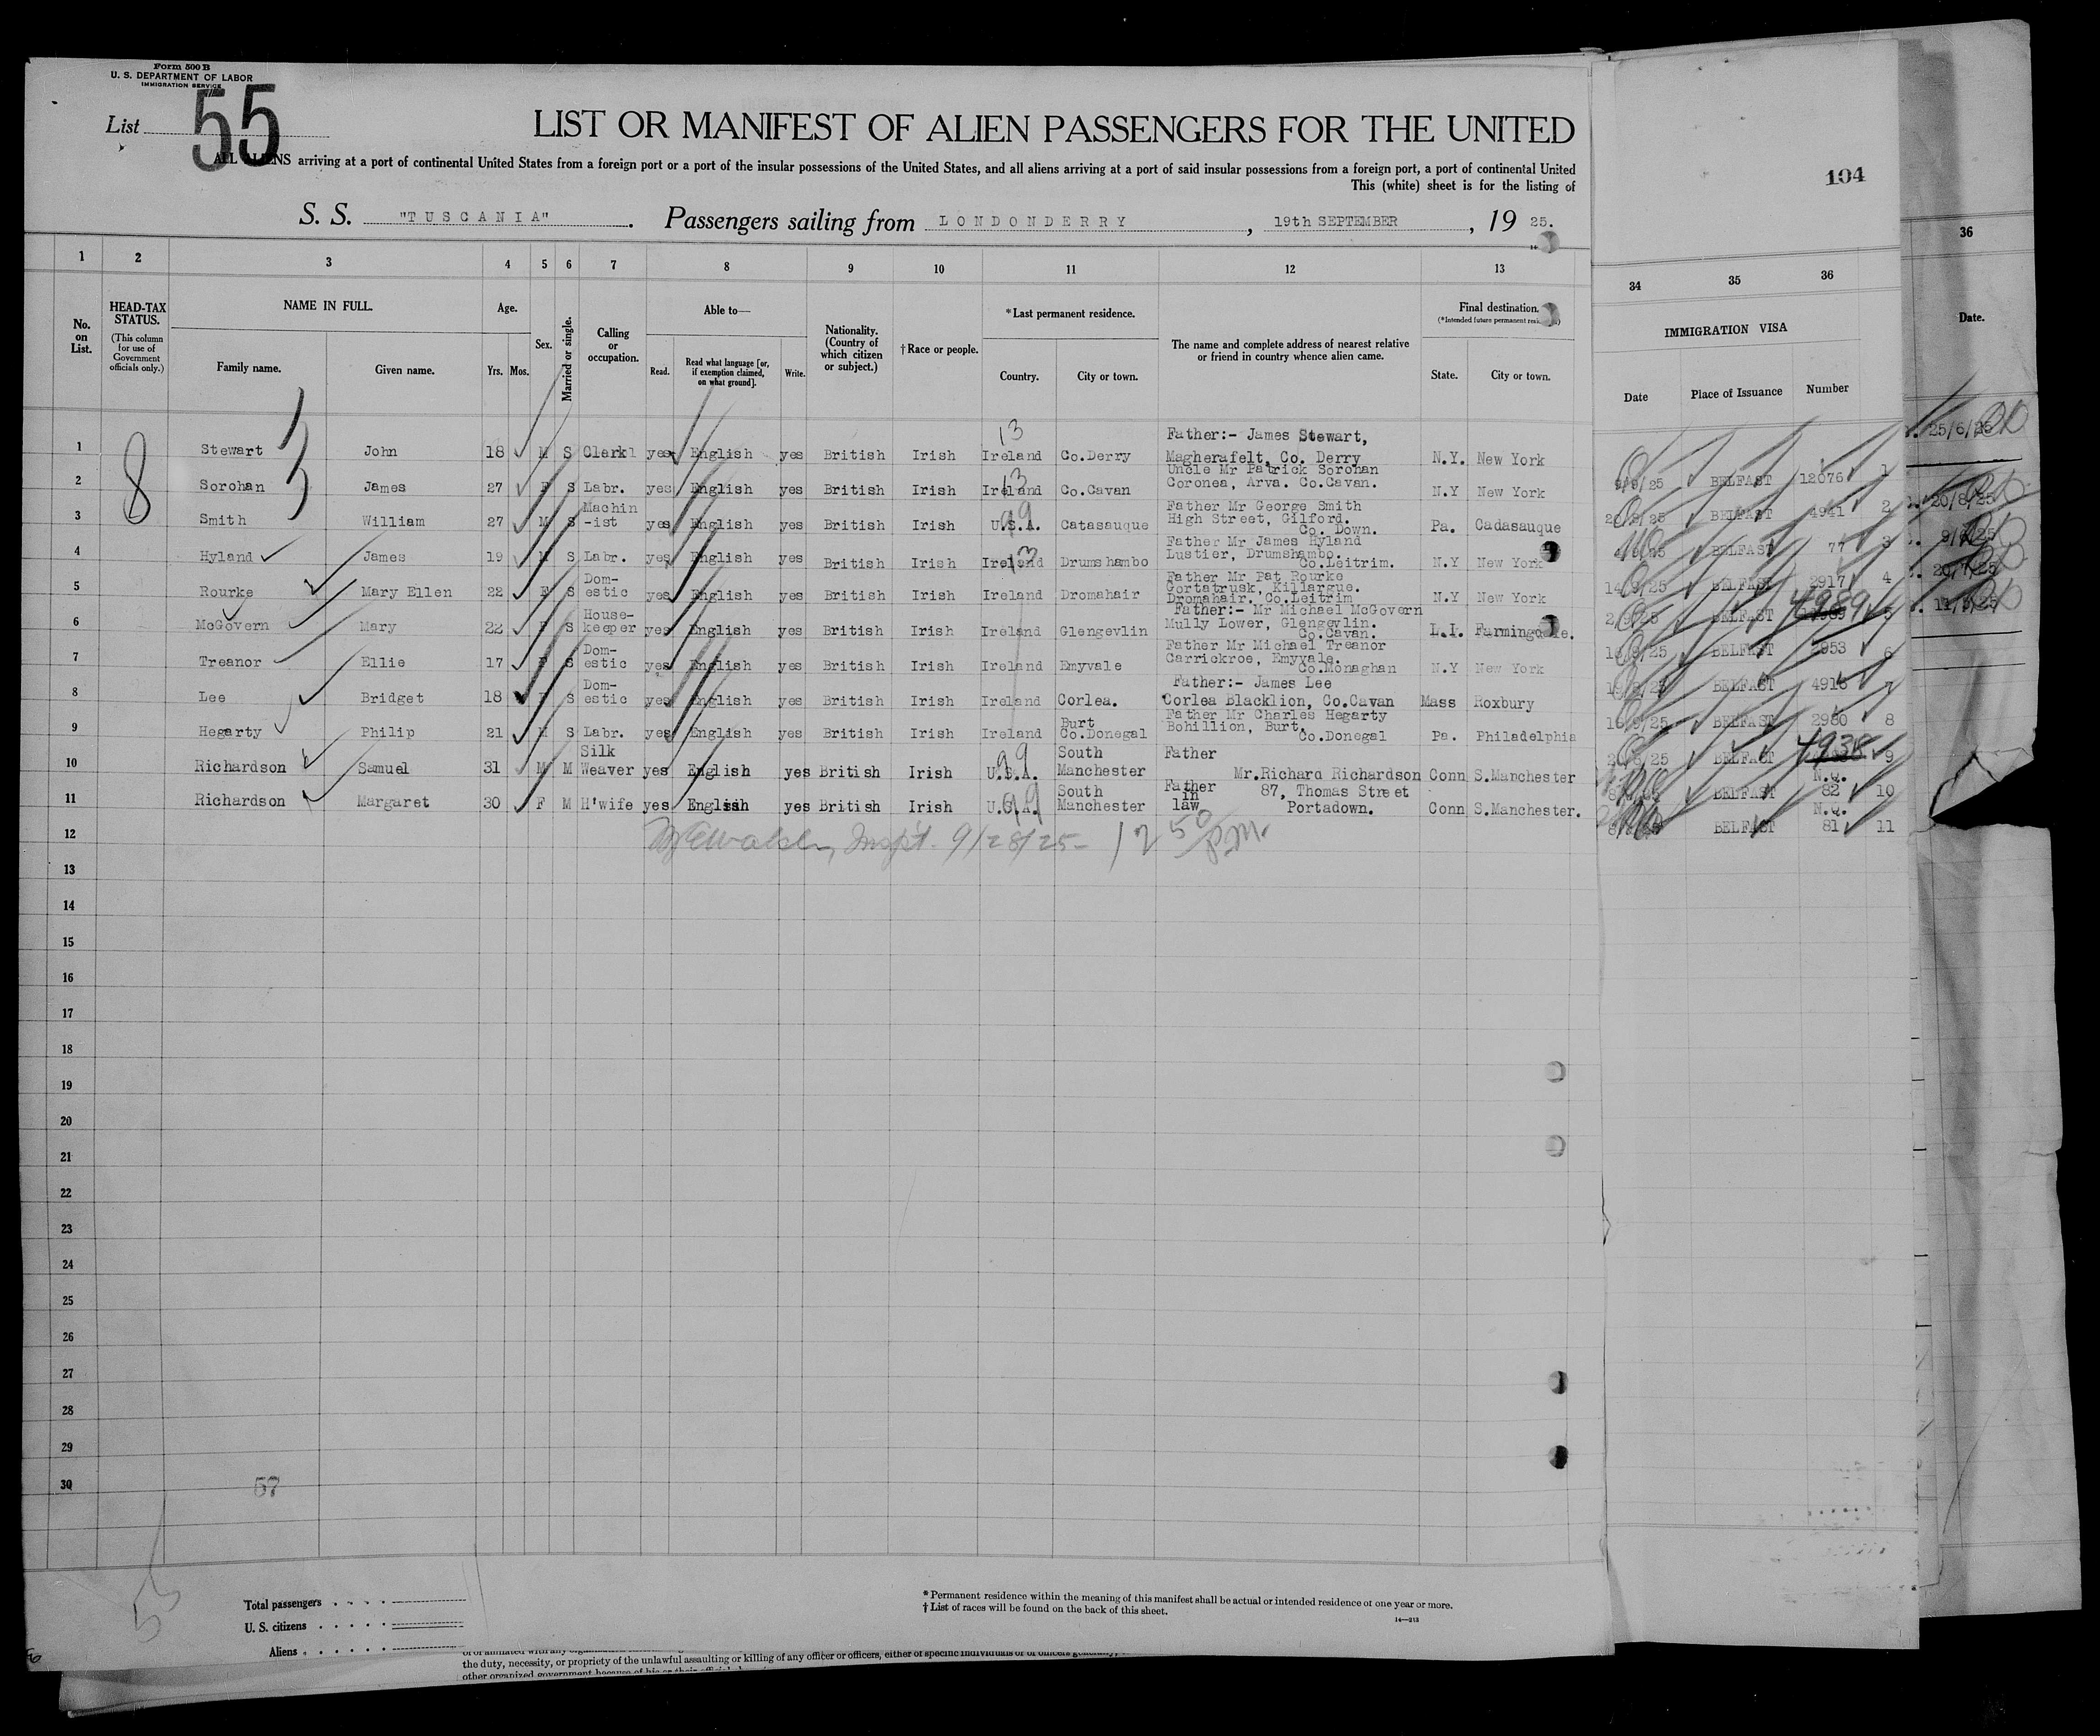 Form 500 B
U. S. DEPARTMENT OF LABOR
IMMIGRATION SERVICE
List 55
LIST OR MANIFEST OF ALIEN PASSENGERS FOR THE UNITED
ALL ALIENS arriving at a port of continental United States from a foreign port or a port of the insular possessions of the United States, and all aliens arriving at a port of said insular possessions from a foreign port, a port of continental United
This (white) sheet is for the listing of
104
S. S. "TUSCANIA". Passengers sailing from LONDONDERRY, 19th SEPTEMBER, 19 25.
1 2 3 4 5 6 7 8 9 10 11 12 13 34 35 36 36
No. on List.
HEAD-TAX STATUS.
(This column for use of Government officials only.)
NAME IN FULL.
Family name. Given name.
Age.
Yrs. Mos.
Sex.
Married or single.
Calling or occupation.
Able to—
Read. Read what language [or, if exemption claimed, on what ground]. Write.
Nationality. (Country of which citizen or subject.)
†Race or people.
*Last permanent residence.
Country. City or town.
The name and complete address of nearest relative or friend in country whence alien came.
Final destination.
(*Intended future permanent
State. City or town.
IMMIGRATION VISA
Date Place of Issuance Number
Date.
8
1 Stewart John 18 M S Clerk yes English yes British Irish 13 Ireland Co.Derry Father:- James Stewart, Magherafelt, Co. Derry N.Y. New York 9/25 BELFAST 12076 1
2 Sorohan James 27 S Labr. yes English yes British Irish 13 Ireland Co.Cavan Uncle Mr Patrick Sorohan Coronea, Arva. Co.Cavan. N.Y New York BELFAST 4941 2
3 Smith William 27 M S Machin -ist yes English yes British Irish 99 U.S.A. Catasauque Father Mr George Smith High Street, Gilford. Co. Down. Pa. Cadasauque BELFAST 77 3
4 Hyland James 19 M S Labr. yes English yes British Irish 13 Ireland Drumshambo Father Mr James Hyland Lustier, Drumshambo. Co.Leitrim. N.Y New York 14/9/25 BELFAST 2917 4
5 Rourke Mary Ellen 22 F S Dom- estic yes English yes British Irish Ireland Dromahair Father Mr Pat Rourke Gortatrusk, Killargue. Dromahair. Co.Leitrim N.Y New York BELFAST 4989 5
6 McGovern Mary 22 F S House- keeper yes English yes British Irish Ireland Glengevlin Father:- Mr Michael McGovern Mully Lower, Glengevlin. Co.Cavan. L.I. Farmingdale. BELFAST 2953 6
7 Treanor Ellie 17 F S Dom- estic yes English yes British Irish Ireland Emyvale Father Mr Michael Treanor Carrickroe, Emyvale. Co.Monaghan N.Y New York BELFAST 4916 7
8 Lee Bridget 18 F S Dom- estic yes English yes British Irish Ireland Corlea. Father:- James Lee Corlea Blacklion, Co.Cavan Mass Roxbury BELFAST 2980 8
9 Hegarty Philip 21 M S Labr. yes English yes British Irish Ireland Burt Co.Donegal Father Mr Charles Hegarty Bohillion, Burt, Co.Donegal Pa. Philadelphia BELFAST 4938 9
10 Richardson Samuel 31 M M Silk Weaver yes English yes British Irish 99 U.S.A. South Manchester Father Mr.Richard Richardson Conn S.Manchester BELFAST N.Q. 82 10
11 Richardson Margaret 30 F M H'wife yes English yes British Irish 99 U.S.A. South Manchester Father in law 87, Thomas Street Portadown. Conn S.Manchester. BELFAST N.Q. 81 11
25/6/25
20/8/25
20/7/25
12 Inspt. 9/28/25- 12 50 P.M.
13
14
15
16
17
18
19
20
21
22
23
24
25
26
27
28
29
30
57
Total passengers
U. S. citizens
Aliens
*Permanent residence within the meaning of this manifest shall be actual or intended residence of one year or more.
†List of races will be found on the back of this sheet.
14—212
the duty, necessity, or propriety of the unlawful assaulting or killing of any officer or officers, either of specific individuals or of officers generally,